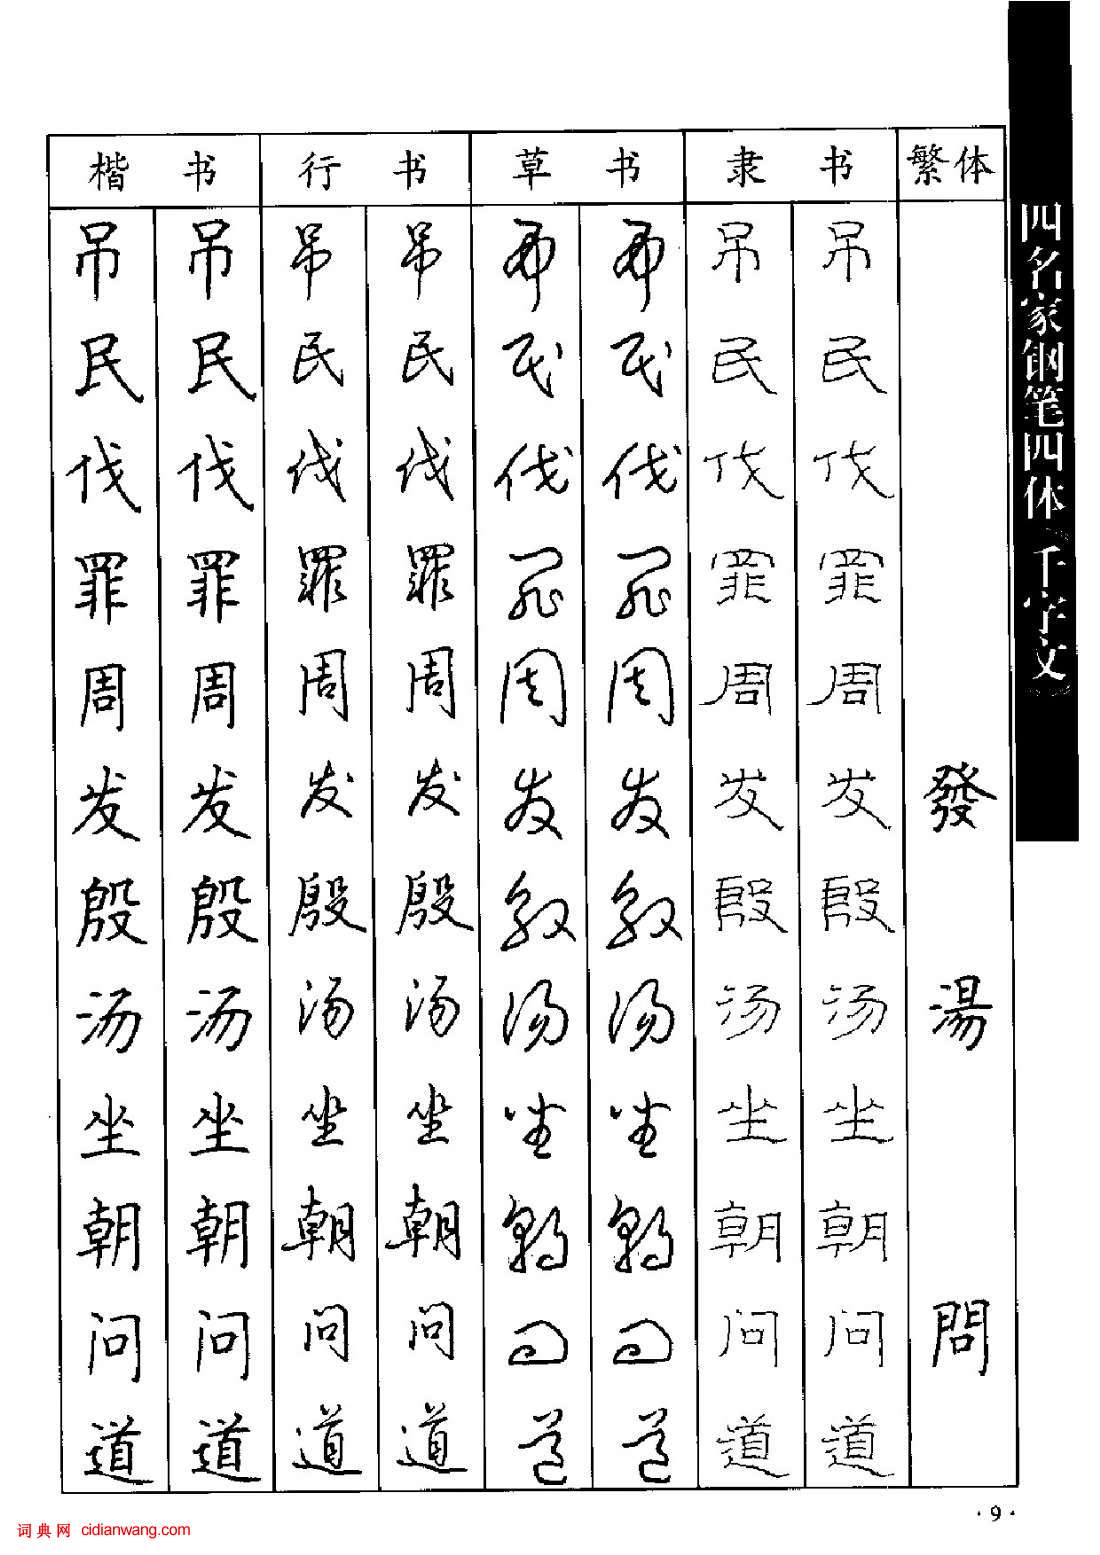 楷书 行书 草书 隶书 繁体
吊 吊 吊 吊 吊 吊 吊 吊
民 民 民 民 民 民 民 民
伐 伐 伐 伐 伐 伐 伐 伐
罪 罪 罪 罪 罪 罪 罪 罪
周 周 周 周 周 周 周 周
发 发 发 发 发 发 发 发 發
殷 殷 殷 殷 殷 殷 殷 殷
汤 汤 汤 汤 汤 汤 汤 汤 湯
坐 坐 坐 坐 坐 坐 坐 坐
朝 朝 朝 朝 朝 朝 朝 朝
问 问 问 问 问 问 问 问 問
道 道 道 道 道 道 道 道
四名家钢笔四体《千字文》
·9·
词典网 cidianwang.com